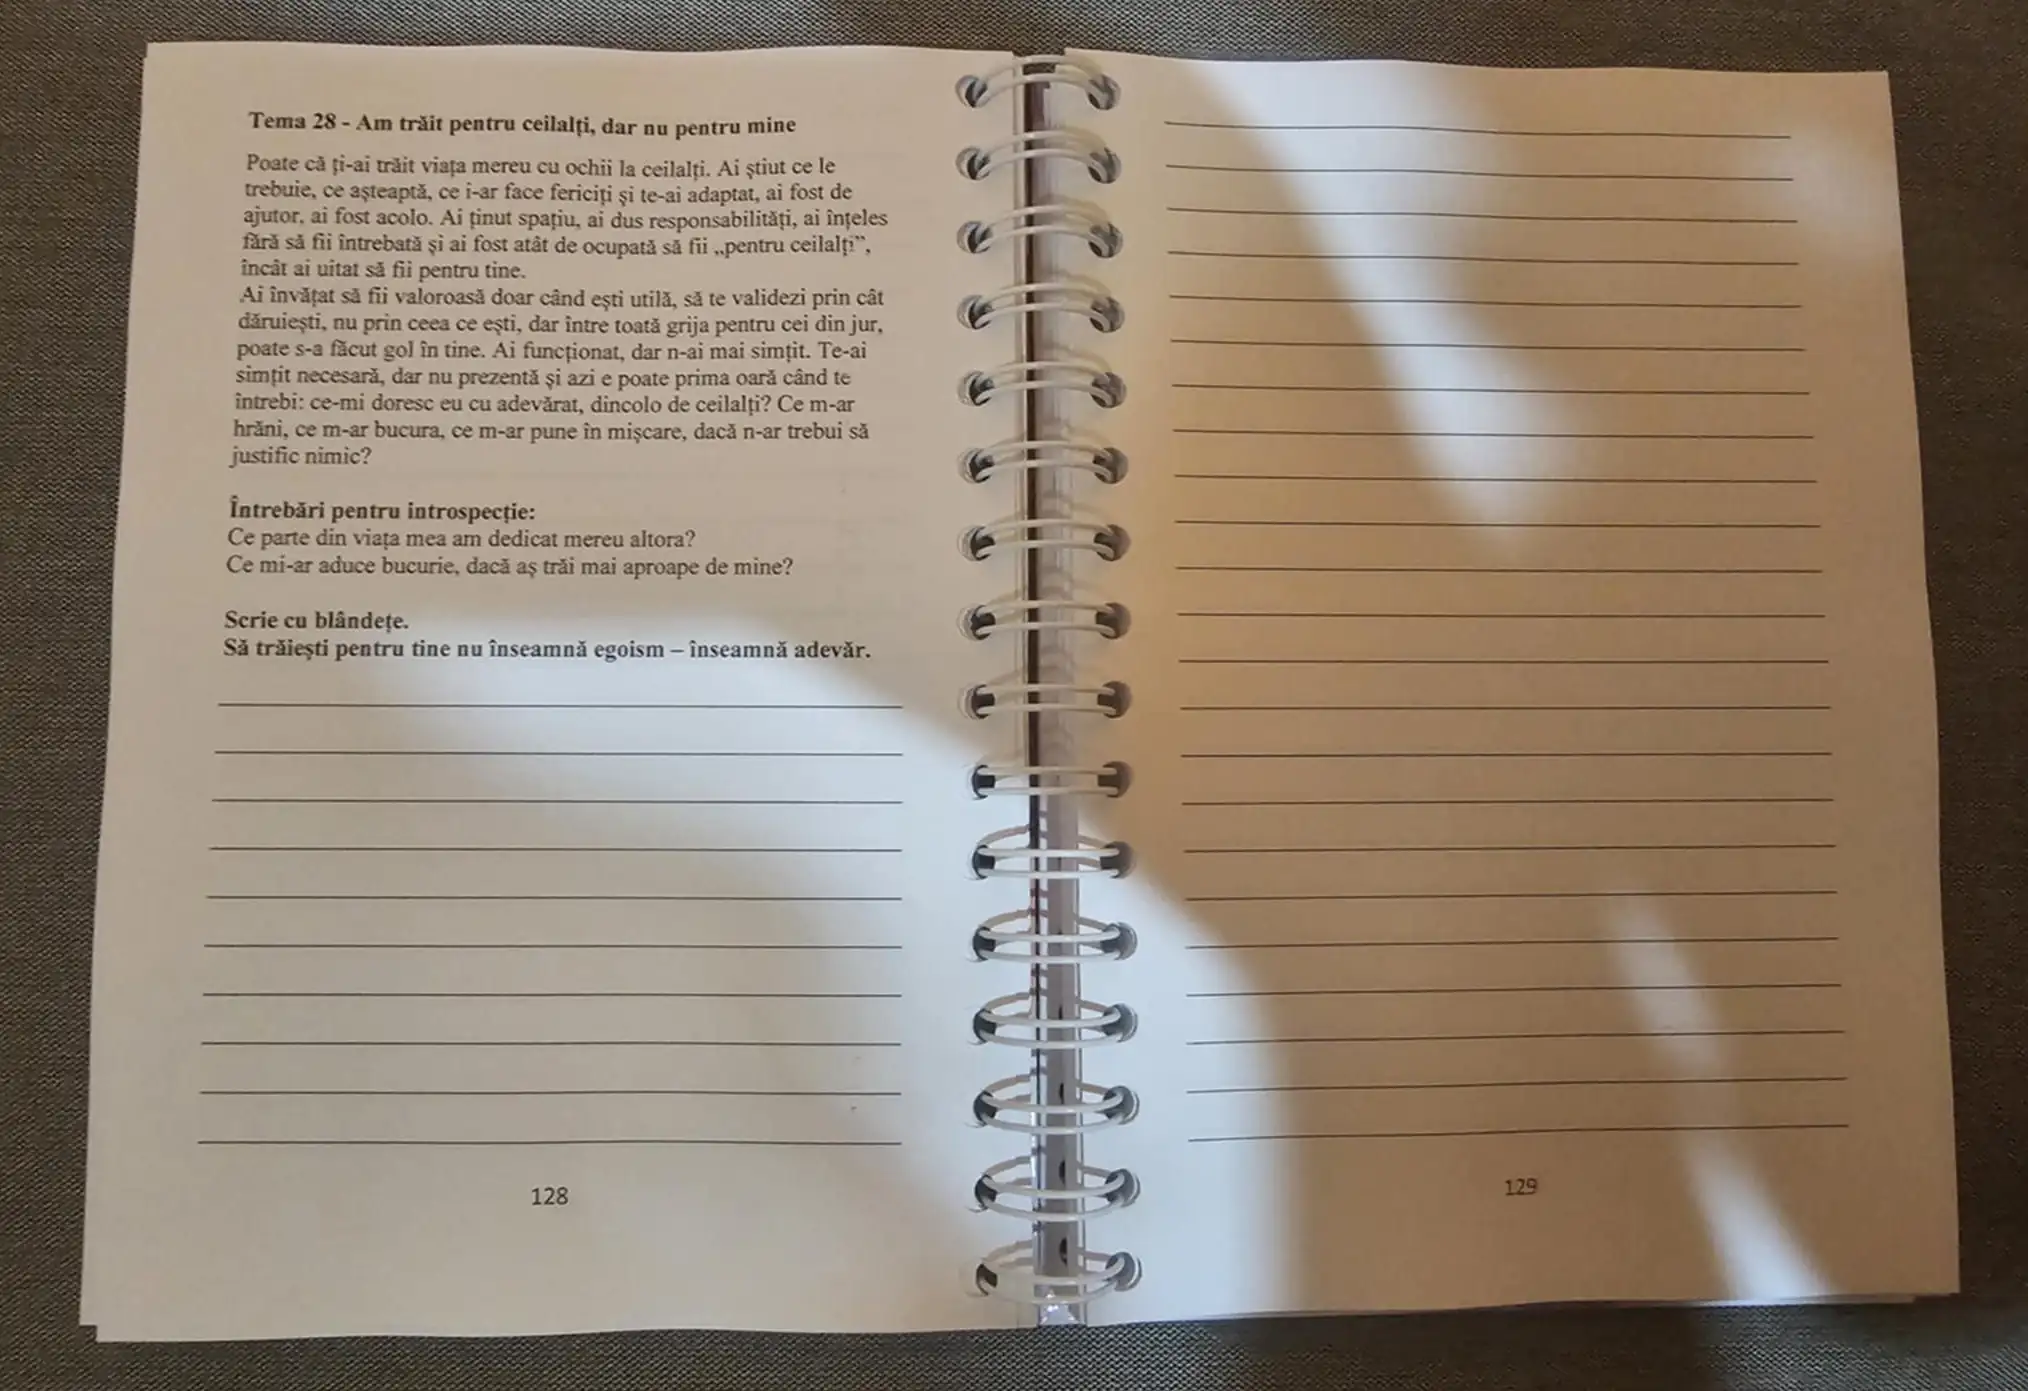 Tema 28 - Am trăit pentru ceilalți, dar nu pentru mine
Poate că ți-ai trăit viața mereu cu ochii la ceilalți. Ai știut ce le
trebuie, ce așteaptă, ce i-ar face fericiți și te-ai adaptat, ai fost de
ajutor, ai fost acolo. Ai ținut spațiu, ai dus responsabilități, ai înțeles
fără să fii întrebată și ai fost atât de ocupată să fii „pentru ceilalți”,
încât ai uitat să fii pentru tine.
Ai învățat să fii valoroasă doar când ești utilă, să te validezi prin cât
dăruiești, nu prin ceea ce ești, dar între toată grija pentru cei din jur,
poate s-a făcut gol în tine. Ai funcționat, dar n-ai mai simțit. Te-ai
simțit necesară, dar nu prezentă și azi e poate prima oară când te
întrebi: ce-mi doresc eu cu adevărat, dincolo de ceilalți? Ce m-ar
hrăni, ce m-ar bucura, ce m-ar pune în mișcare, dacă n-ar trebui să
justific nimic?
Întrebări pentru introspecție:
Ce parte din viața mea am dedicat mereu altora?
Ce mi-ar aduce bucurie, dacă aș trăi mai aproape de mine?
Scrie cu blândețe.
Să trăiești pentru tine nu înseamnă egoism – înseamnă adevăr.
128
129